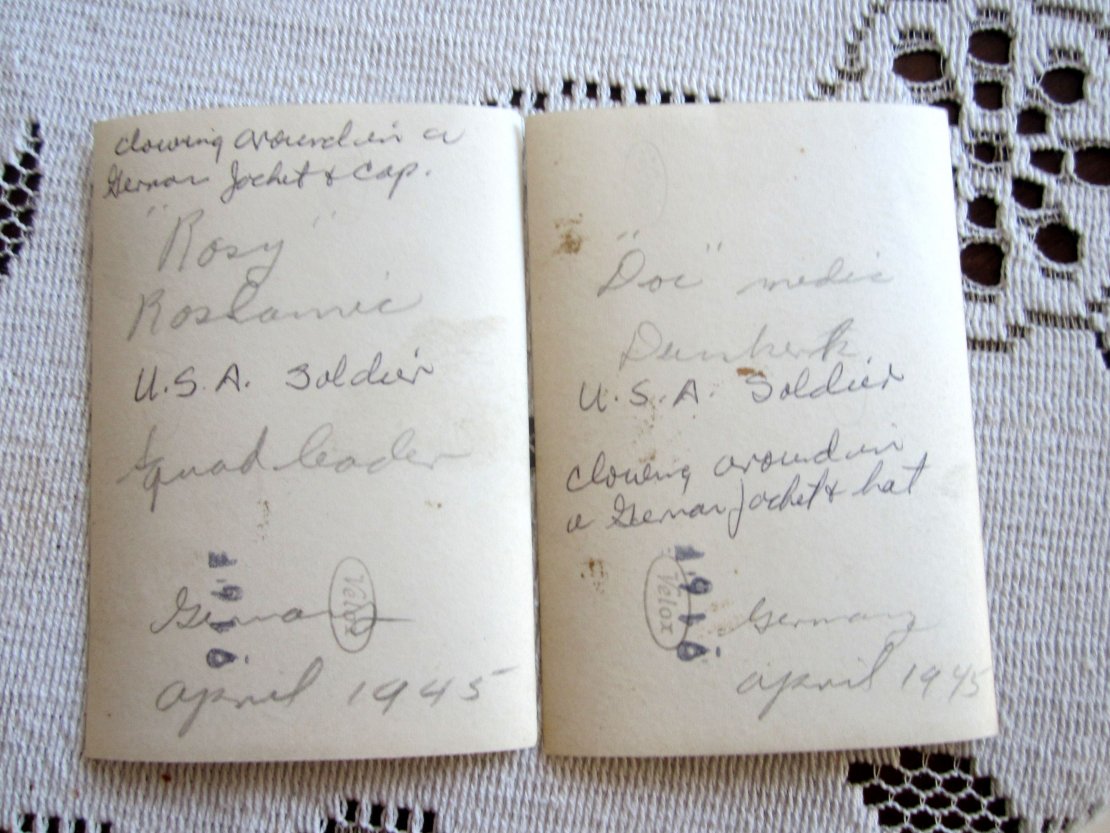 clowing around in a
German Jacket & Cap.
"Rosy"
Roslamic
U.S.A. Soldier
Squad leader
Velox
German
april 1945
"Doc" medic
Dunkerk
U.S.A. Soldier
clowing around in
a German Jacket & hat
Velox
Germany
april 1945